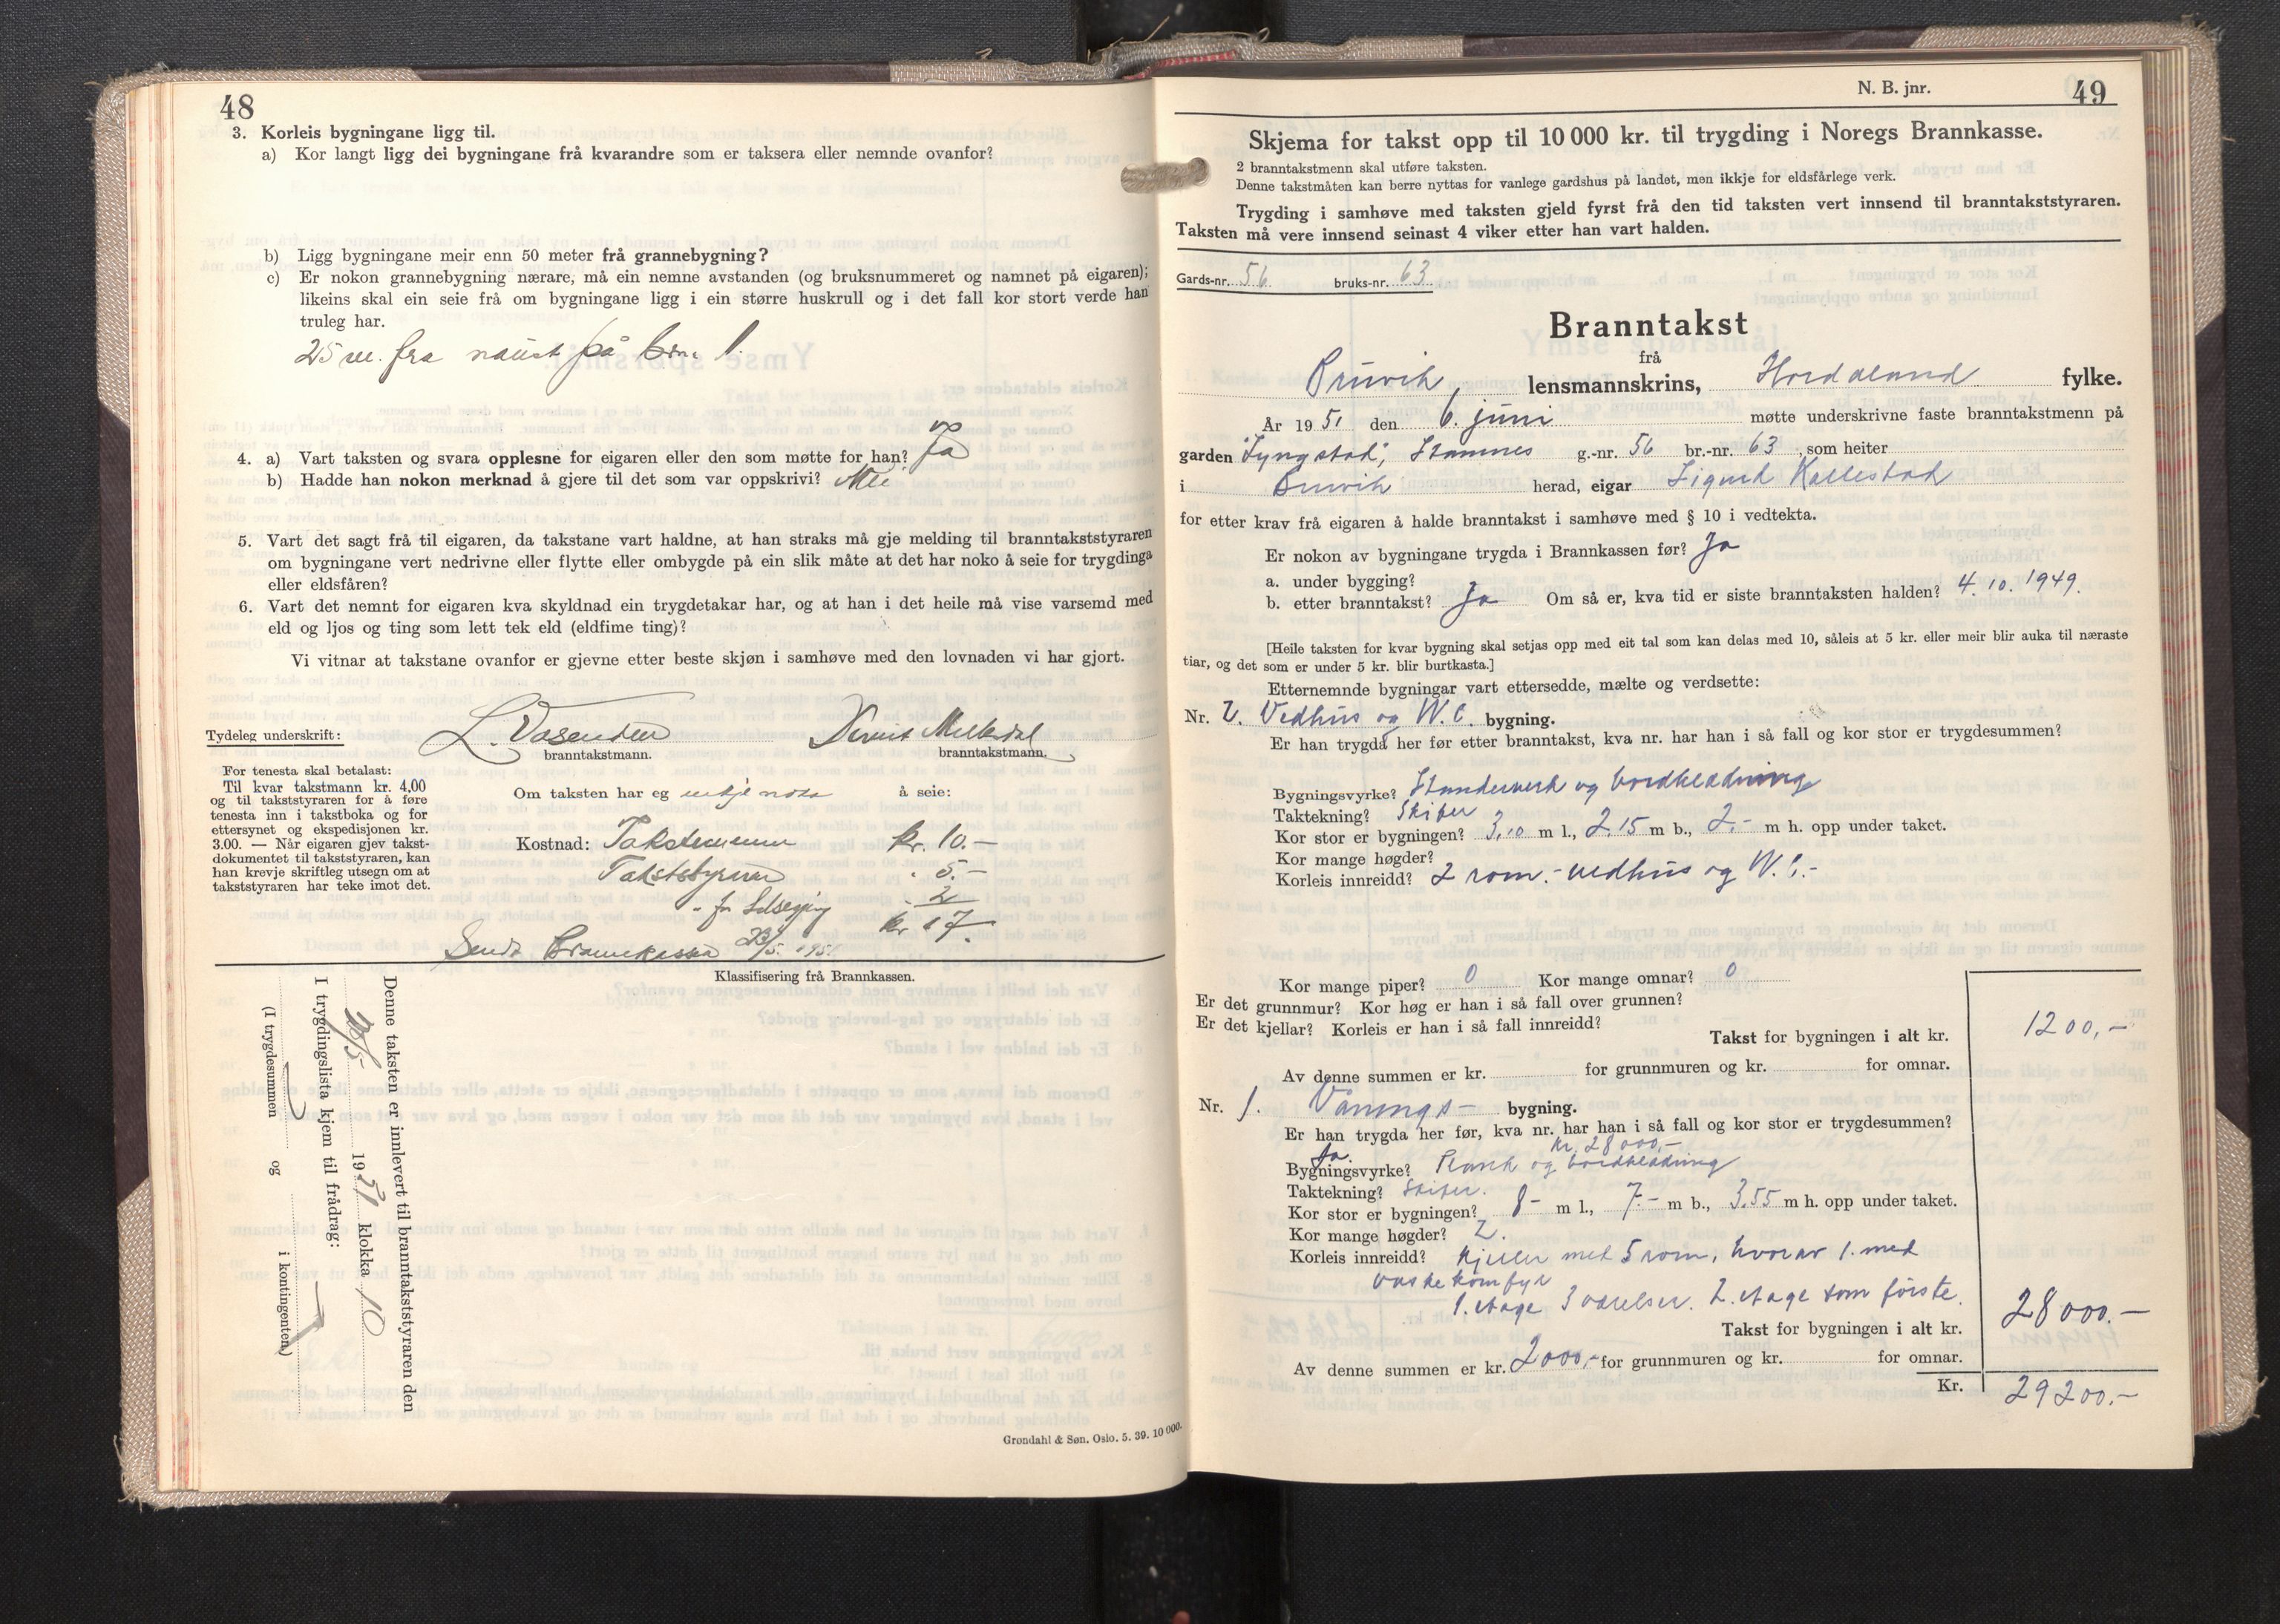 48
3. Korleis bygningane ligg til.
a) Kor langt ligg dei bygningane frå kvarandre som er taksera eller nemnde ovanfor?
b) Ligg bygningane meir enn 50 meter frå grannebygning?
c) Er nokon grannebygning nærare, må ein nemne avstanden (og bruksnummeret og namnet på eigaren);
likeins skal ein seie frå om bygningane ligg i ein større huskrull og i det fall kor stort verde han
truleg har.
25 m. fra naust på brn. 1.
4. a) Vart taksten og svara opplesne for eigaren eller den som møtte for han? Ja
b) Hadde han nokon merknad å gjere til det som var oppskrivi? Nei
5. Vart det sagt frå til eigaren, da takstane vart haldne, at han straks må gje melding til branntakststyraren
om bygningane vert nedrivne eller flytte eller ombygde på ein slik måte at det har noko å seie for trygdinga
eller eldsfåren?
6. Vart det nemnt for eigaren kva skyldnad ein trygdetakar har, og at han i det heile må vise varsemd med
eld og ljos og ting som lett tek eld (eldfime ting)?
Vi vitnar at takstane ovanfor er gjevne etter beste skjøn i samhøve med den lovnaden vi har gjort.
Tydeleg underskrift: L. Vasenden
branntakstmann. branntakstmann.
For tenesta skal betalast:
Til kvar takstmann kr. 4,00
og til takststyraren for å føre
tenesta inn i takstboka og for
ettersynet og ekspedisjonen kr.
3.00. — Når eigaren gjev takst-
dokumentet til takststyraren, kan
han krevje skriftleg utsegn om at
takststyraren har teke imot det.
Om taksten har eg inkje noko å seie:
Kostnad: Takstmenn kr. 10.—
Takststyrar " 5.—
- for 2
kr 17.
Sendt Brannkassa 23/5. 1951
Klassifisering frå Brannkassen.
Denne taksten er innlevert til branntakststyraren den
/5 1951 klokka 10
I trygdingslista kjem til frådrag:
(I trygdesummen og i kontingenten)
Grøndahl & Søn. Oslo. 5. 39. 10 000.
N. B. jnr. 49
Skjema for takst opp til 10 000 kr. til trygding i Noregs Brannkasse.
2 branntakstmenn skal utføre taksten.
Denne takstmåten kan berre nyttas for vanlege gardshus på landet, men ikkje for eldsfårlege verk.
Trygding i samhøve med taksten gjeld fyrst frå den tid taksten vert innsend til branntakststyraren.
Taksten må vere innsend seinast 4 viker etter han vart halden.
Gards-nr. 56 bruks-nr. 63
Branntakst
frå
Bruvik lensmannskrins, Hordaland fylke.
År 1951 den 6. juni møtte underskrivne faste branntakstmenn på
garden Fyngstad, Stamnes g.-nr. 56 br.-nr. 63, som heiter
i Bruvik herad, eigar Sigurd Kallestad
for etter krav frå eigaren å halde branntakst i samhøve med § 10 i vedtekta.
Er nokon av bygningane trygda i Brannkassen før? Ja
a. under bygging?
b. etter branntakst? Ja Om så er, kva tid er siste branntaksten halden? 4. 10. 1949.
[Heile taksten for kvar bygning skal setjas opp med eit tal som kan delas med 10, såleis at 5 kr. eller meir blir auka til næraste
tiar, og det som er under 5 kr. blir burtkasta.]
Etternemnde bygningar vart ettersedde, mælte og verdsette:
Nr. 2. Vedhus og W.C. bygning.
Er han trygda her før etter branntakst, kva nr. har han i så fall og kor stor er trygdesummen?
Bygningsvyrke? Standerverk og bordkledning
Taktekning? Skifer
Kor stor er bygningen? 3,10 m l., 2.15 m b., 2.- m h. opp under taket.
Kor mange høgder?
Korleis innreidd? 2 rom.- vedhus og W.C.-
Kor mange piper? 0 Kor mange omnar? 0
Er det grunnmur? Kor høg er han i så fall over grunnen?
Er det kjellar? Korleis er han i så fall innreidd?
Takst for bygningen i alt kr. 1200,-
Av denne summen er kr. for grunnmuren og kr. for omnar.
Nr. 1. Vånings- bygning.
Er han trygda her før, kva nr. har han i så fall og kor stor er trygdesummen?
Ja. kr. 28000,-
Bygningsvyrke? Plank og bordkledning
Taktekning? Skifer.
Kor stor er bygningen? 8- m l., 7.- m b., 3.55 m h. opp under taket.
Kor mange høgder? 2.
Korleis innreidd? Kjeller med 5 rom, hvorav 1. med
vaskekomfyr
1. etage 3 værelser. 2. etage som første. 28000.-
Takst for bygningen i alt kr.
Av denne summen er kr. 2000,- for grunnmuren og kr. for omnar.
Kr. 29200.-